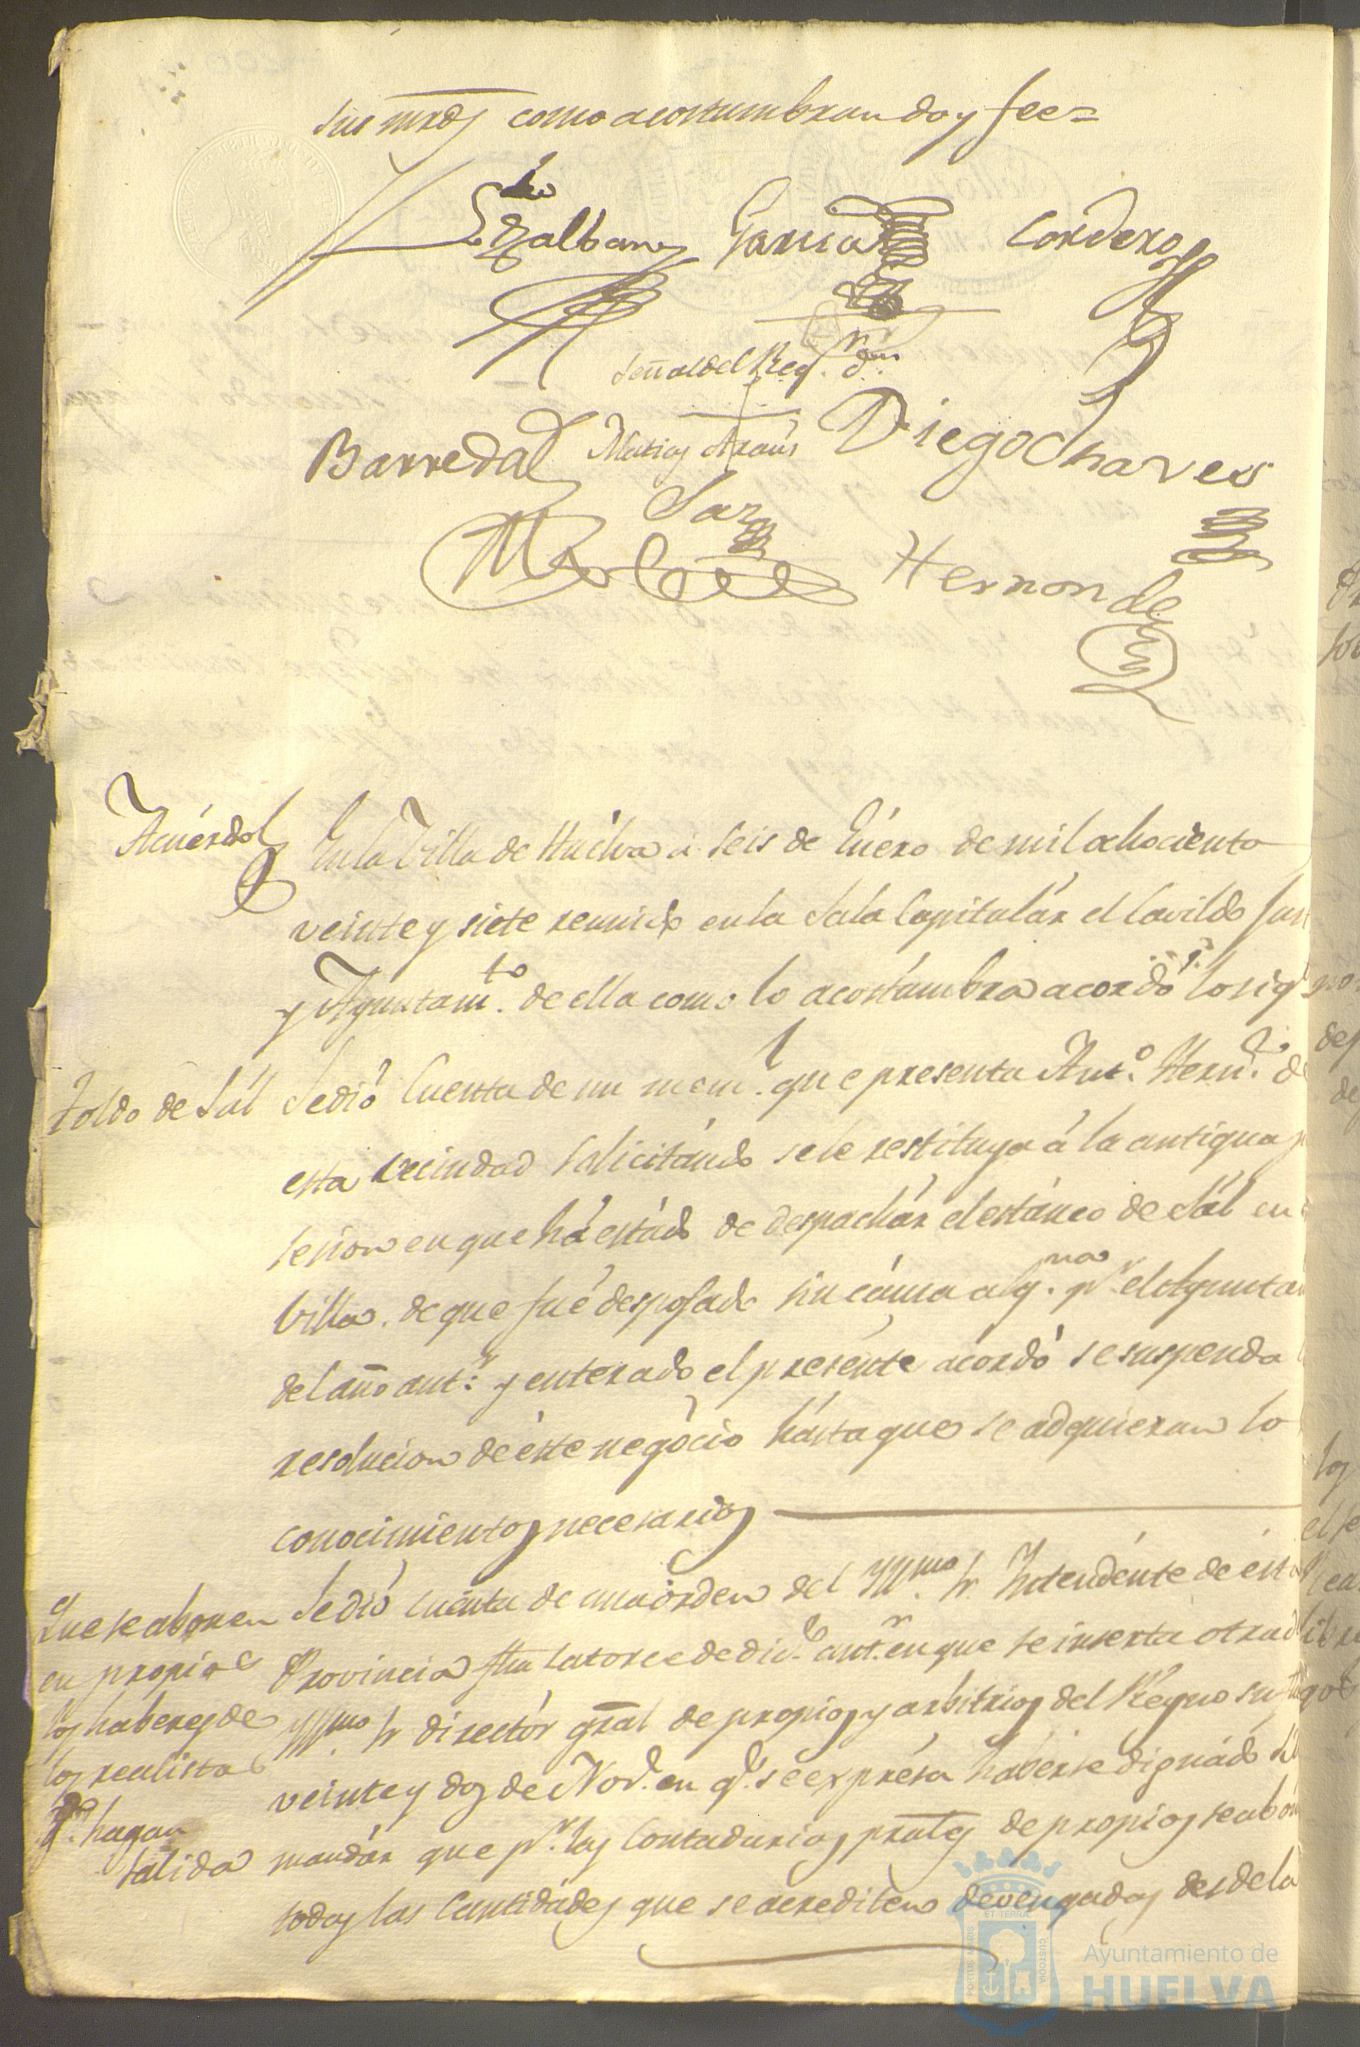 sus mrds como acostumbran doy fee=
Garcia Cordero
Señal del Reg.r d.n
Barreda Matias Diego Chaves
Hernandez
Acuérdo
En la Villa de Huelva á seis de Enéro de mil ochociento
veinte y siete reunido en la Sala Capitulár el Cavildo Jus
y Ayuntam.to de ella como lo acostúmbra acordó lo sig
Toldo de Sál
Se dió Cuenta de un mem.l que presenta Ant.o Hern.z de
esta vecindad solicitándo se le restituya á la antigua p
sesion en que há estádo de despachár el estánco de Sál en
Villa, de que fué despojado sin cáusa alg.na p.r el Ayunta
del año ant.r y enterado el presénte acordó se suspenda
resolucion de éste negócio hásta que se adquieran lo
conocimientos necesarios
Que se abonen
en propios
los haberes de
los realistas
hagan
salida
Se dió cuénta de una órden del Yll.mo Sr. Intendénte de ésta
Provincia fha Catorce de dic.e ant.r en que se insérta ótra d
Yll.mo Sr director gral de propios y arbitrios del Reyno su fha
veinte y dos de Nov.e en q.e se exprésa habérse dignádo
mandár que p.r las Contadurias prales de propios se abón
todas las Cantidádes que se acrediten devengadas desde la
Ayuntamiento de
HUELVA